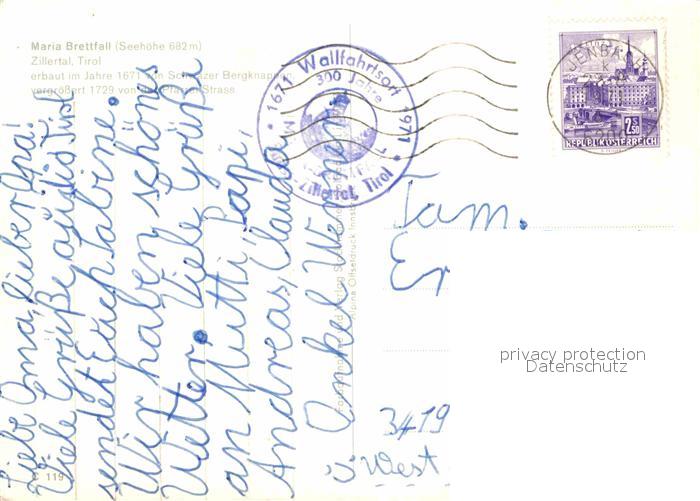 Maria Brettfall (Seehöhe 682m)
Zillertal, Tirol
erbaut im Jahre 1671 von Schwazer Bergknappen,
vergrößert 1729 von der Pfarre Strass
1671 Wallfahrtsort 1971
300 Jahre
Zillertal, Tirol
JENBACH
2.50
REPUBLIK ÖSTERREICH
Liebe Oma, lieber Opa!
Viele Grüße aus Tirol
sendet Euch Sabine.
Wir haben schönes
Wetter. Viele Grüße
an Mutti, Papi,
Andreas, Claudia,
Onkel Werner.
Fam.
Er
3419
ü West.
privacy protection
Datenschutz
C 119
Alpine Offsetdruck Innsbruck